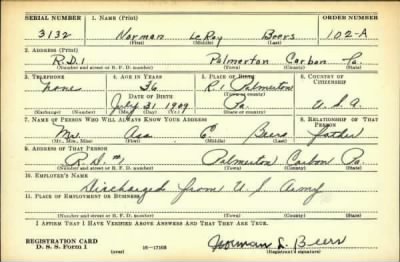 SERIAL NUMBER 1. NAME (Print) ORDER NUMBER
3132 Norman LeRoy Beers 102-A
(First) (Middle) (Last)
2. ADDRESS (Print)
R.D.1 Palmerton Carbon Pa.
(Number and street or R. F. D. number) (Town) (County) (State)
3. TELEPHONE 4. AGE IN YEARS 5. PLACE OF BIRTH 6. COUNTRY OF CITIZENSHIP
None 36 R1 Palmerton
DATE OF BIRTH (Town or county)
July 31 1909 Pa. U.S.A.
(Exchange) (Number) (Mo.) (Day) (Yr.) (State or country)
7. NAME OF PERSON WHO WILL ALWAYS KNOW YOUR ADDRESS 8. RELATIONSHIP OF THAT PERSON
Mr. Asa Beers father
(Mr., Mrs., Miss) (First) (Middle) (Last)
9. ADDRESS OF THAT PERSON
R.D. #1 Palmerton Carbon Pa.
(Number and street or R. F. D. number) (Town) (County) (State)
10. EMPLOYER'S NAME
Discharged from U S Army
11. PLACE OF EMPLOYMENT OR BUSINESS
(Number and street or R. F. D. number) (Town) (County) (State)
I AFFIRM THAT I HAVE VERIFIED ABOVE ANSWERS AND THAT THEY ARE TRUE.
REGISTRATION CARD
D. S. S. Form 1 (over) 16-17105 Norman L. Beers
(Registrant's signature)